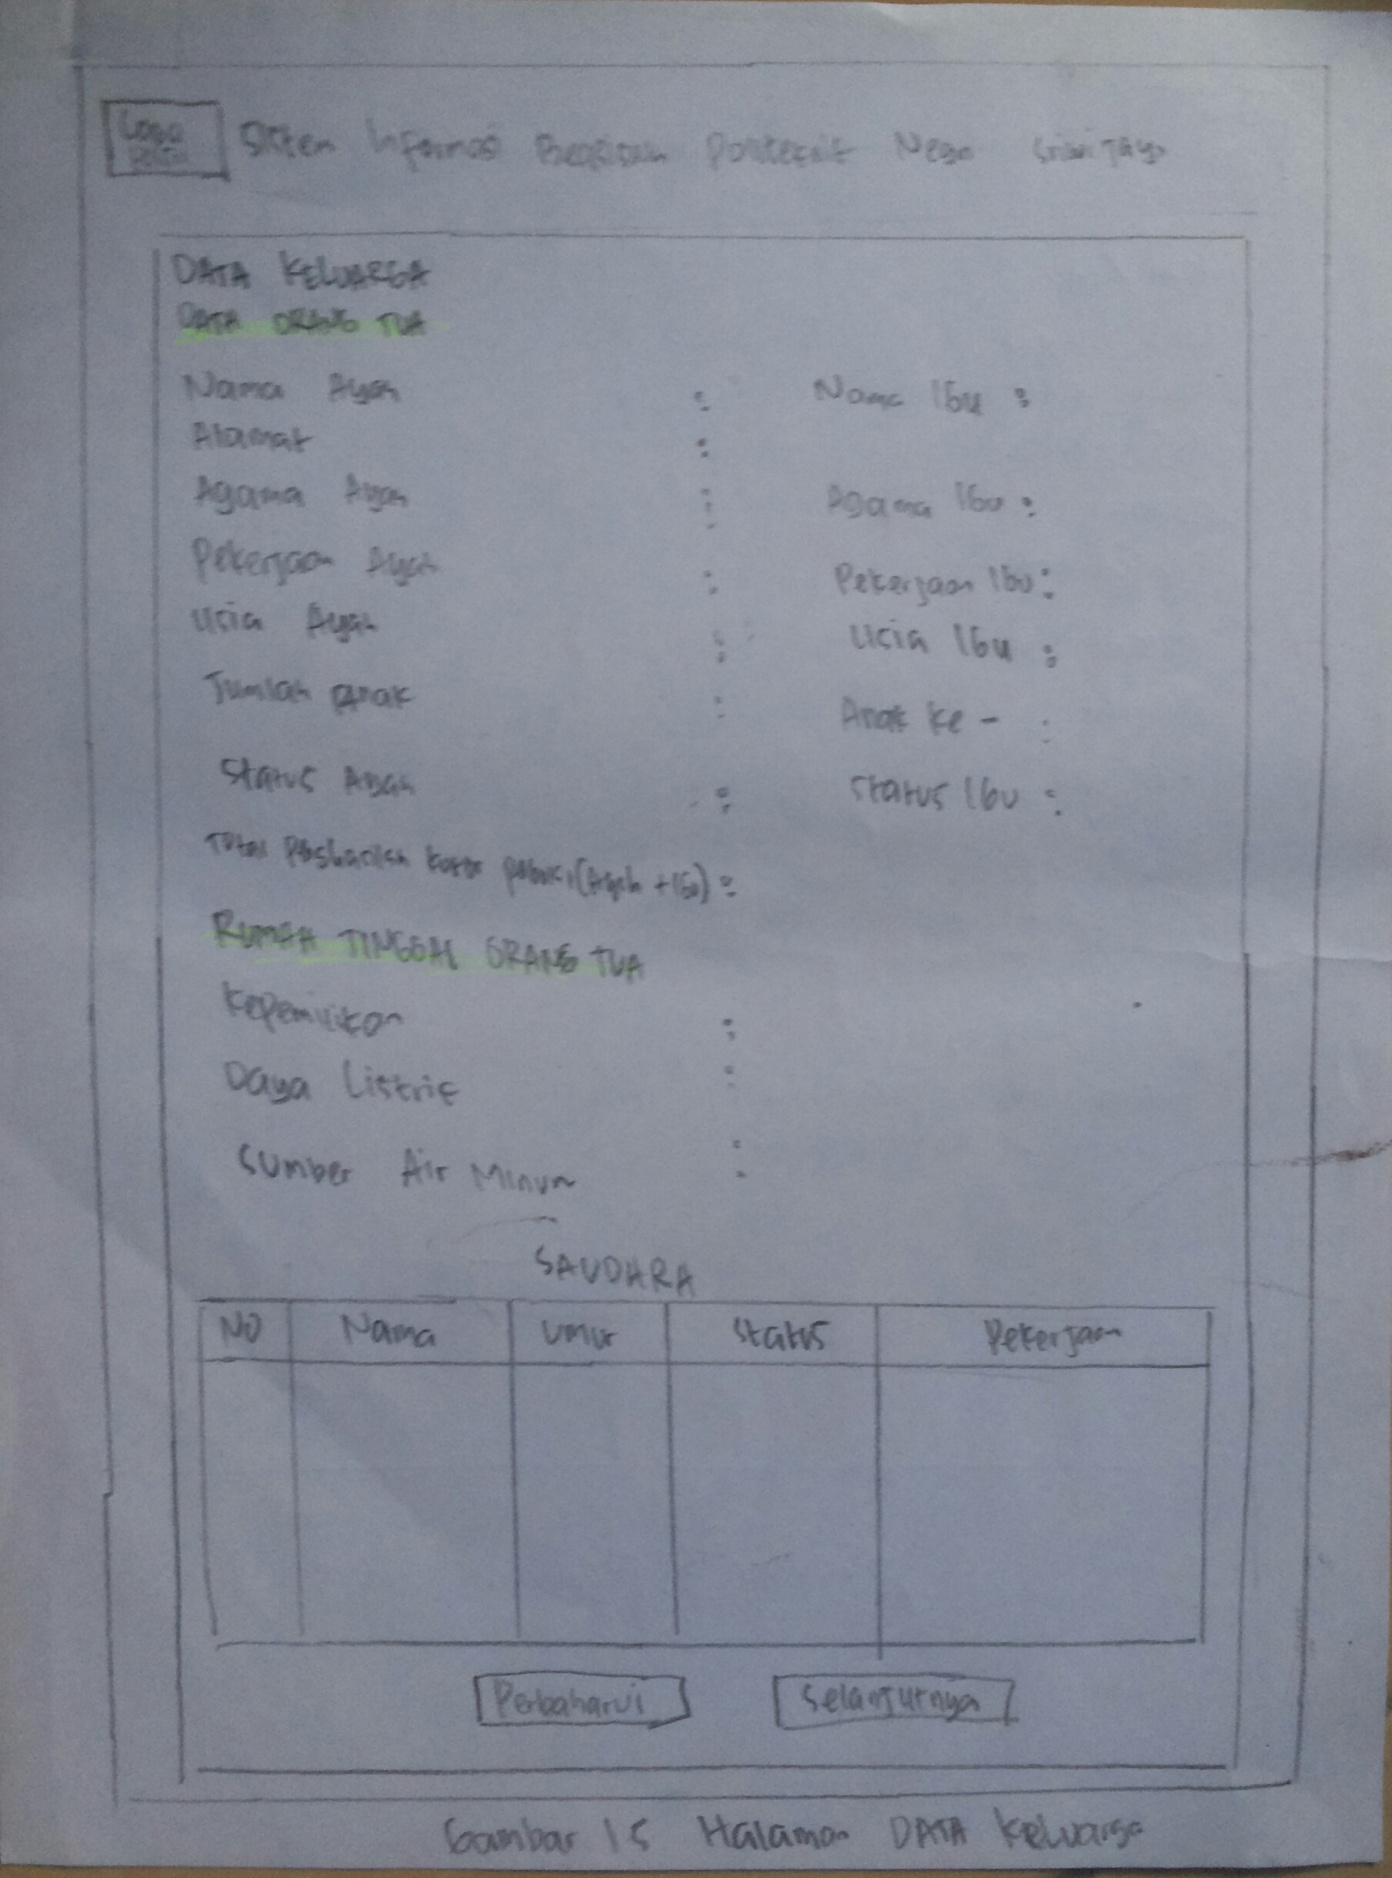 Logo Polsri
Sistem Informasi Beasiswa Politeknik Neger Sriwijaya
DATA KELUARGA
DATA ORANG TUA
Nama Ayah : Nama Ibu :
Alamat :
Agama Ayah : Agama Ibu :
Pekerjaan Ayah : Pekerjaan Ibu :
Usia Ayah : Usia Ibu :
Jumlah Anak : Anak ke - :
Status Ayah : Status Ibu :
Total Penghasilan kotor (Ayah + Ibu) :
RUMAH TINGGAL ORANG TUA
Kepemilikan :
Daya Listrik :
Sumber Air Minum :
SAUDARA
NO Nama Umur Status Pekerjaan
Perbaharui Selanjutnya
Gambar 15 Halaman DATA Keluarga